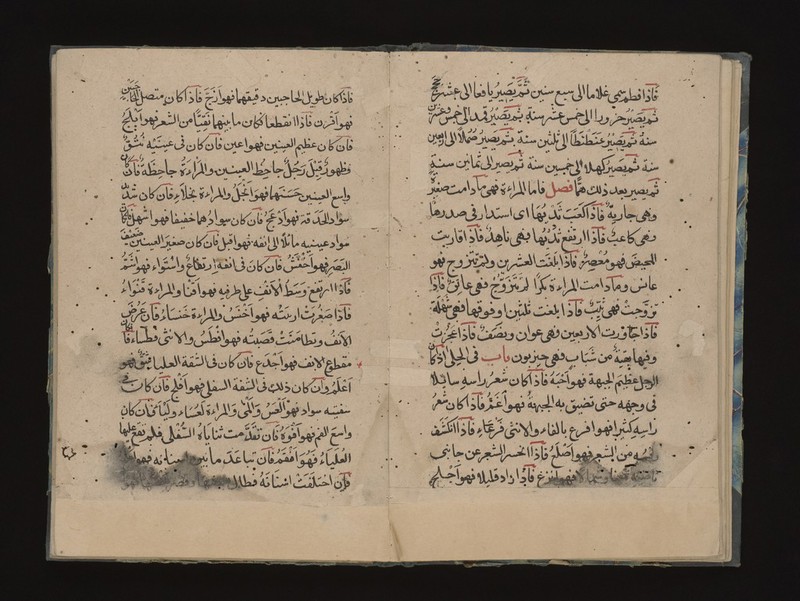 فاذا فطم سمي غلاما الى سبع سنين ثم يصير يافعا الى عشر حجج
ثم يصير حزورا الى خمس عشر سنة ثم يصير قمدا الى خمس وعشرين
سنة ثم يصير عنطنطا الى ثلثين سنة ثم يصير صملا الى اربعين
سنة ثم يصير كهلا الى خمسين سنة ثم يصير الى ثمانين سنة
ثم يصير بعد ذلك همّا فصل فاما المراءة فهى مادامت صغيرة
وهى جارية فاذا اكعبت ثديها اى استدار فى صدرها
وهى كاعب فاذا ارتفع ثديها فهى ناهد فاذا قاربت
المحيض فهو معصر فاذا بلغت العشرين ولم تتزوج فهو
عانس ومادامت المراءة بكرا لم تتزوج فهى عاتق فاذا
تزوجت فهى ثيب فاذا بلغت ثلثين او فوقها فهى شهلة
فاذا جاوزت الاربعين فهى عوان ونصف فاذا عجزت
وفيها بقية من شباب فهى حيزبون باب فى الحلى اذا كان
الرجل عظيم الجبهة فهو اجبه فاذا كان شعر راسه سائلا
فى وجهه حتى تضيق به الجبهة فهو اغم فاذا كان شعر
راسه كثيرا فهو افرع بالفاء والانثى فرعاء فاذا انكشف
راسه من الشعر فهو اصلع فاذا انحسر الشعر عن جانبى
ناصيته يمينا وشمالا فهو انزع فاذا زاد قليلا فهو اجلح
فاذا كان طويل الحاجبين دقيقهما فهو ازج فاذا كان متصل الحاجبين
فهو اقرن فاذا انقطعا فكان ما بينهما نقيا من الشعر فهو ابلج
فان كان عظيم العينين فهو اعين فان كان فى عينيه
وظهور قيل رجل جاحظ العينين والمراءة جاحظة فان كان
واسع العينين حسنها فهو انجل والمراءة نجلاء فان كان شديد
سواد الحدقة فهو ادعج فان كان سوادهما خفيفا فهو اشهل فان كان
سواد عينيه مائلا الى انفه فهو اقبل فان كان صغير العينين ضعيف
البصر فهو اخفش فان كان فى انفه ارتفاع واستواء فهو اشم
فاذا ارتفع وسط الانف على طرفيه فهو اقنا والمراءة قنواء
فاذا صغرت ارنبته فهو اخنس والمراءة خنساء فان عرض
الانف وتطامنت قصبته فهو افطس والانثى فطساء فان كان
مقطوع الانف فهو اجدع فان كان فى الشفة العليا شق فهو
اعلم وان كان ذلك فى الشفة السفلى فهو افلح فان كانت فى
شفتيه سواد فهو العس والمى والمراءة لعساء ولمياء فان كان
واسع الفم فهو افوه فان تقدمت ثناياه السفلى فلم تقع عليها
العلياء فهو افقم فان تباعد ما بين اسنانه فهو
فان اختلفت اسنانه فطال بعضها وقصر بعضها فهو